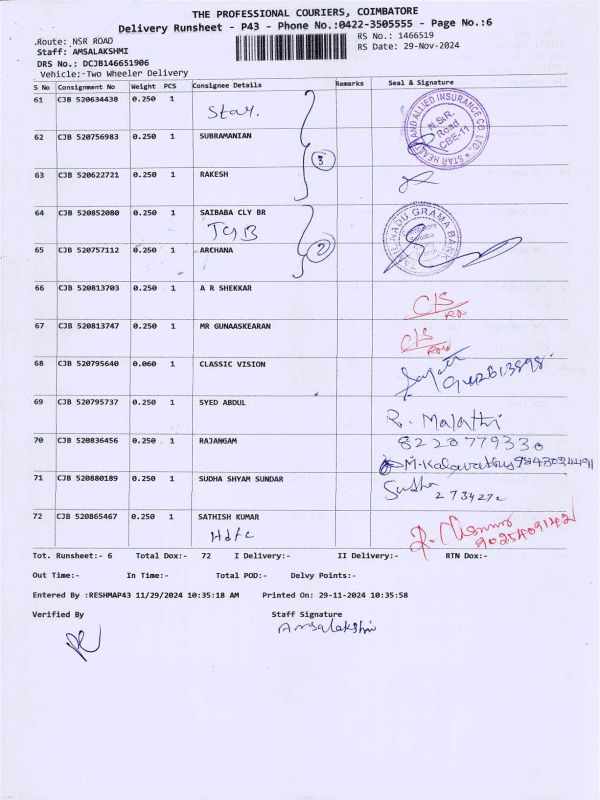 THE PROFESSIONAL COURIERS, COIMBATORE
Delivery Runsheet - P43 - Phone No.:0422-3505555 - Page No.:6
Route: NSR ROAD
RS No.: 1466519
Staff: AMSALAKSHMI
RS Date: 29-Nov-2024
DRS No.: DCJB146651906
Vehicle:-Two Wheeler Delivery
S No Consignment No Weight PCS Consignee Details Remarks Seal & Signature
61 CJB 520634438 0.250 1 Star.
62 CJB 520756983 0.250 1 SUBRAMANIAN
3
63 CJB 520622721 0.250 1 RAKESH
STAR HEALTH AND ALLIED INSURANCE CO. LTD.
N.S.R. Road CBE-11
64 CJB 520852080 0.250 1 SAIBABA CLY BR
TGB
2
65 CJB 520757112 0.250 1 ARCHANA
TAMILNADU GRAMA BANK
66 CJB 520813703 0.250 1 A R SHEKKAR
C/S
67 CJB 520813747 0.250 1 MR GUNAASKEARAN
C/S
68 CJB 520795640 0.060 1 CLASSIC VISION
69 CJB 520795737 0.250 1 SYED ABDUL
R. Malathi
70 CJB 520836456 0.250 1 RAJANGAM
8220779330
71 CJB 520880189 0.250 1 SUDHA SHYAM SUNDAR
Sudha
72 CJB 520865467 0.250 1 SATHISH KUMAR
Hdfc
Tot. Runsheet:- 6 Total Dox:- 72 I Delivery:- II Delivery:- RTN Dox:-
Out Time:- In Time:- Total POD:- Delvy Points:-
Entered By :RESHMAP43 11/29/2024 10:35:18 AM Printed On: 29-11-2024 10:35:58
Verified By Staff Signature
Amsalakshmi